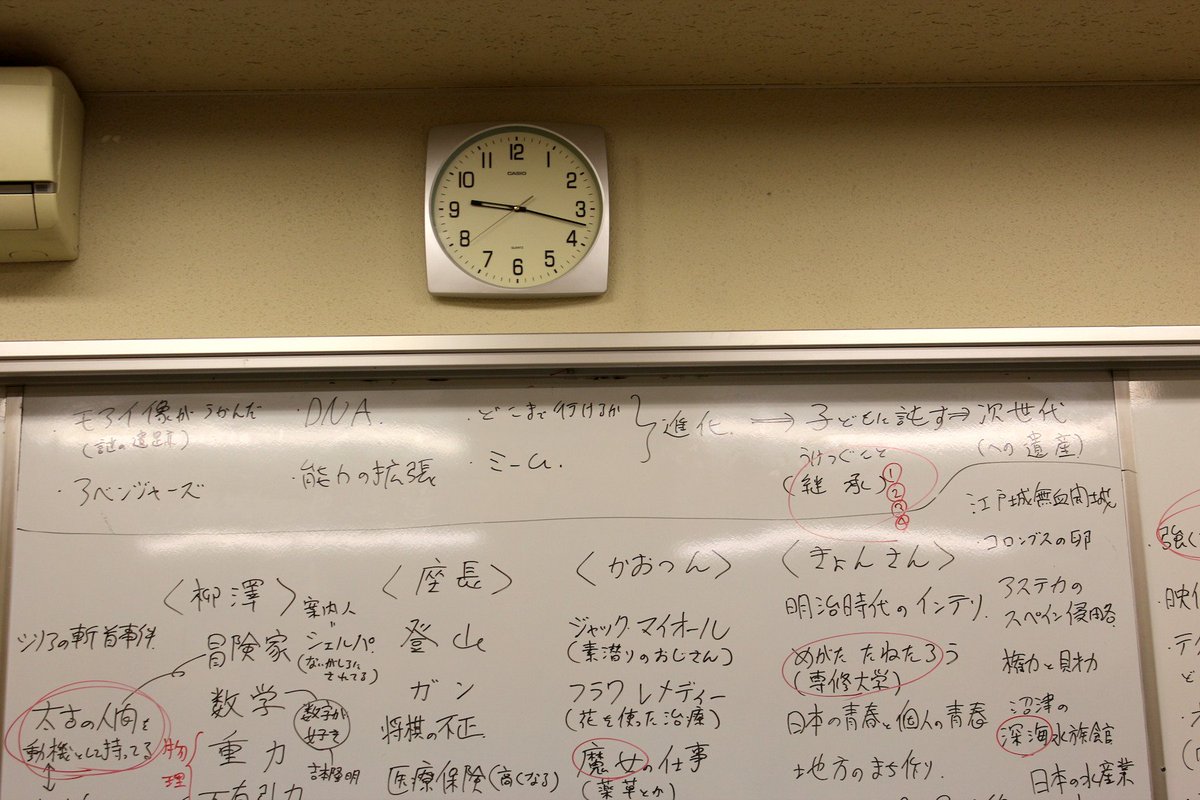 12
1
2
3
4
5
6
7
8
9
10
11
CASIO
QUARTZ
・モアイ像がうかんだ
(謎の遺跡)
・アベンジャーズ
・DNA.
・能力の拡張
・どこまで行けるか
・ミーム.
進化.
→ 子どもに託す⇒次世代
(への遺産)
うけつぐこと
(継承)
①
②
③
④
〈柳澤〉
シリアの斬首事件
冒険家
案内人
シェルパ
(ないがしろに
されてる)
太古の人間を
動機として持ってる
数学
数字が
好き
吉本隆明
物
理
重力
万有引力
〈座長〉
登山
ガン
将棋の不正.
医療保険(高くなる)
〈かおつん〉
ジャック・マイオール
(素潜りのおじさん)
フラワーレメディー
(花を使った治療)
魔女の仕事
(薬草とか)
〈きょんさん〉
明治時代のインテリ.
めがた たねたろう
(専修大学)
日本の青春と個人の青春
地方のまち作り.
江戸城無血開城
・コロンブスの卵
アステカの
スペイン侵略.
権力と財力
沼津の
深海水族館
日本の水産業
・強く
・映像
・テク
ど